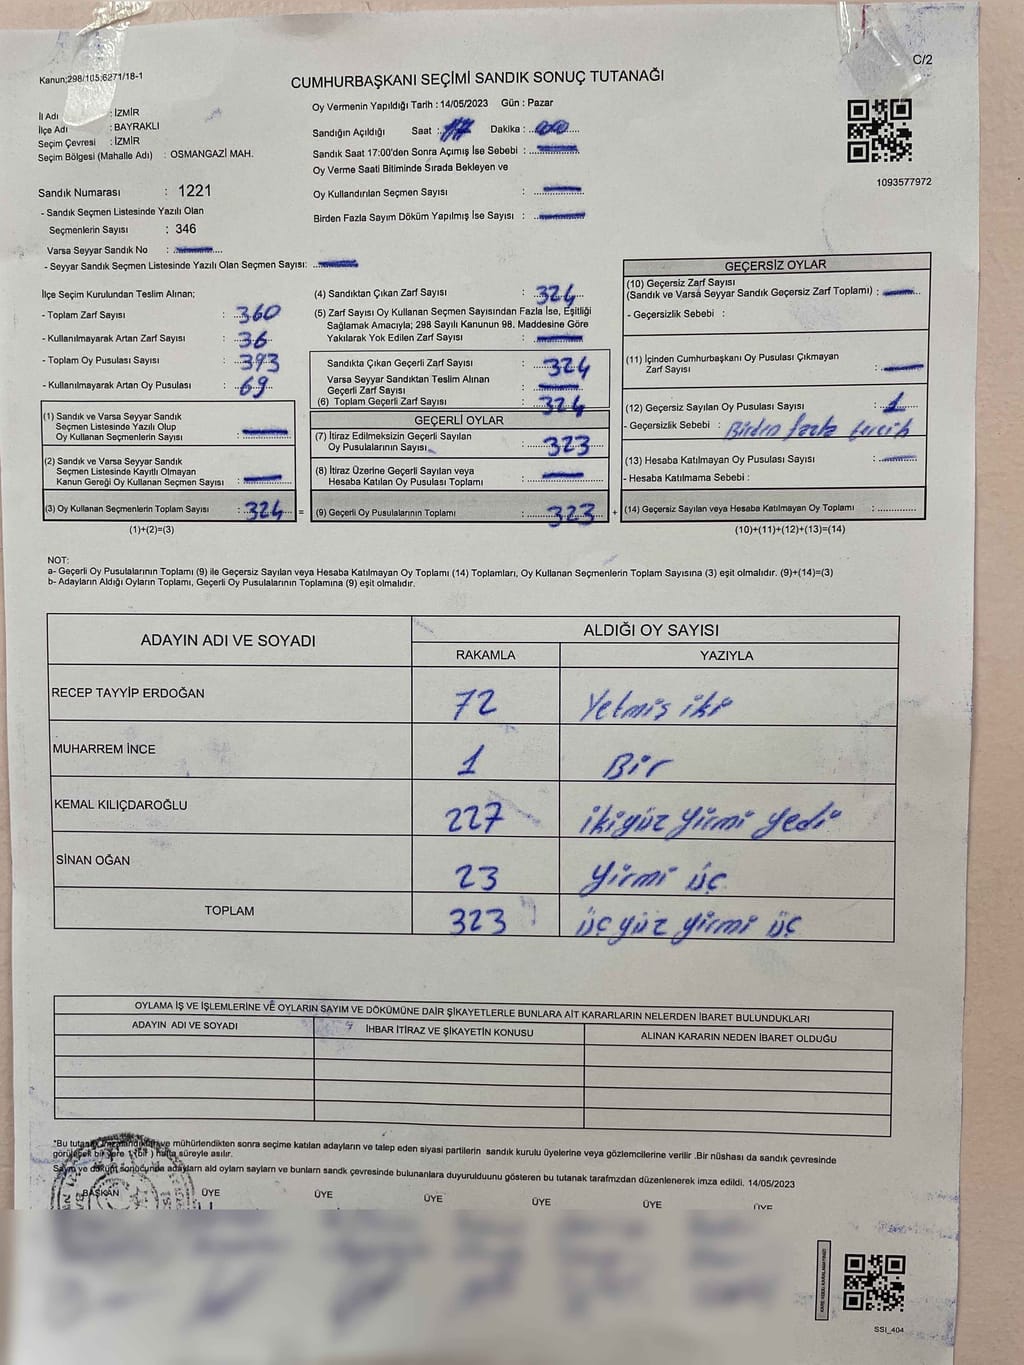 Kanun;298/105;6271/18-1
C/2
CUMHURBAŞKANI SEÇİMİ SANDIK SONUÇ TUTANAĞI
İl Adı : İZMİR
İlçe Adı : BAYRAKLI
Seçim Çevresi : İZMİR
Seçim Bölgesi (Mahalle Adı) : OSMANGAZİ MAH.
Oy Vermenin Yapıldığı Tarih : 14/05/2023 Gün : Pazar
Sandığın Açıldığı Saat : 17 Dakika : 00
Sandık Saat 17:00'den Sonra Açımış İse Sebebi :
Oy Verme Saati Bitiminde Sırada Bekleyen ve
Oy Kullandırılan Seçmen Sayısı :
Birden Fazla Sayım Döküm Yapılmış İse Sayısı :
1093577972
Sandık Numarası : 1221
- Sandık Seçmen Listesinde Yazılı Olan
Seçmenlerin Sayısı : 346
Varsa Seyyar Sandık No :
- Seyyar Sandık Seçmen Listesinde Yazılı Olan Seçmen Sayısı:
İlçe Seçim Kurulundan Teslim Alınan;
- Toplam Zarf Sayısı : 360
- Kullanılmayarak Artan Zarf Sayısı : 36
- Toplam Oy Pusulası Sayısı : 393
- Kullanılmayarak Artan Oy Pusulası : 69
(1) Sandık ve Varsa Seyyar Sandık
Seçmen Listesinde Yazılı Olup
Oy Kullanan Seçmenlerin Sayısı :
(2) Sandık ve Varsa Seyyar Sandık
Seçmen Listesinde Kayıtlı Olmayan
Kanun Gereği Oy Kullanan Seçmen Sayısı :
(3) Oy Kullanan Seçmenlerin Toplam Sayısı : 324 =
(1)+(2)=(3)
(4) Sandıktan Çıkan Zarf Sayısı : 324
(5) Zarf Sayısı Oy Kullanan Seçmen Sayısından Fazla İse, Eşitliği
Sağlamak Amacıyla; 298 Sayılı Kanunun 98. Maddesine Göre
Yakılarak Yok Edilen Zarf Sayısı :
Sandıkta Çıkan Geçerli Zarf Sayısı : 324
Varsa Seyyar Sandıktan Teslim Alınan
Geçerli Zarf Sayısı :
(6) Toplam Geçerli Zarf Sayısı : 324
GEÇERLİ OYLAR
(7) İtiraz Edilmeksizin Geçerli Sayılan
Oy Pusulalarının Sayısı : 323
(8) İtiraz Üzerine Geçerli Sayılan veya
Hesaba Katılan Oy Pusulası Toplamı :
(9) Geçerli Oy Pusulalarının Toplamı : 323 +
GEÇERSİZ OYLAR
(10) Geçersiz Zarf Sayısı
(Sandık ve Varsa Seyyar Sandık Geçersiz Zarf Toplamı) :
- Geçersizlik Sebebi :
(11) İçinden Cumhurbaşkanı Oy Pusulası Çıkmayan
Zarf Sayısı :
(12) Geçersiz Sayılan Oy Pusulası Sayısı : 1
- Geçersizlik Sebebi : Birden fazla tercih
(13) Hesaba Katılmayan Oy Pusulası Sayısı :
- Hesaba Katılmama Sebebi :
(14) Geçersiz Sayılan veya Hesaba Katılmayan Oy Toplamı :
(10)+(11)+(12)+(13)=(14)
NOT:
a- Geçerli Oy Pusulalarının Toplamı (9) ile Geçersiz Sayılan veya Hesaba Katılmayan Oy Toplamı (14) Toplamları, Oy Kullanan Seçmenlerin Toplam Sayısına (3) eşit olmalıdır. (9)+(14)=(3)
b- Adayların Aldığı Oyların Toplamı, Geçerli Oy Pusulalarının Toplamına (9) eşit olmalıdır.
ADAYIN ADI VE SOYADI
ALDIĞI OY SAYISI
RAKAMLA YAZIYLA
RECEP TAYYİP ERDOĞAN 72 Yetmiş iki
MUHARREM İNCE 1 Bir
KEMAL KILIÇDAROĞLU 227 ikiyüz yirmi yedi
SİNAN OĞAN 23 yirmi üç
TOPLAM 323 üç yüz yirmi üç
OYLAMA İŞ VE İŞLEMLERİNE VE OYLARIN SAYIM VE DÖKÜMÜNE DAİR ŞİKAYETLERLE BUNLARA AİT KARARLARIN NELERDEN İBARET BULUNDUKLARI
ADAYIN ADI VE SOYADI İHBAR İTİRAZ VE ŞİKAYETİN KONUSU ALINAN KARARIN NEDEN İBARET OLDUĞU
"Bu tutanak ve mühürlendikten sonra seçime katılan adayların ve talep eden siyasi partilerin sandık kurulu üyelerine veya gözlemcilerine verilir .Bir nüshası da sandık çevresinde
görülecek bir yere 1 (bir) hafta süreyle asılır.
Sayım ve döküm sonucunda adayların ald oyların sayları ve bunların sandk çevresinde bulunanlara duyurulduunu gösteren bu tutanak tarafmzdan düzenlenerek imza edildi. 14/05/2023
BAŞKAN ÜYE ÜYE ÜYE ÜYE ÜYE ÜYE
SSI_404